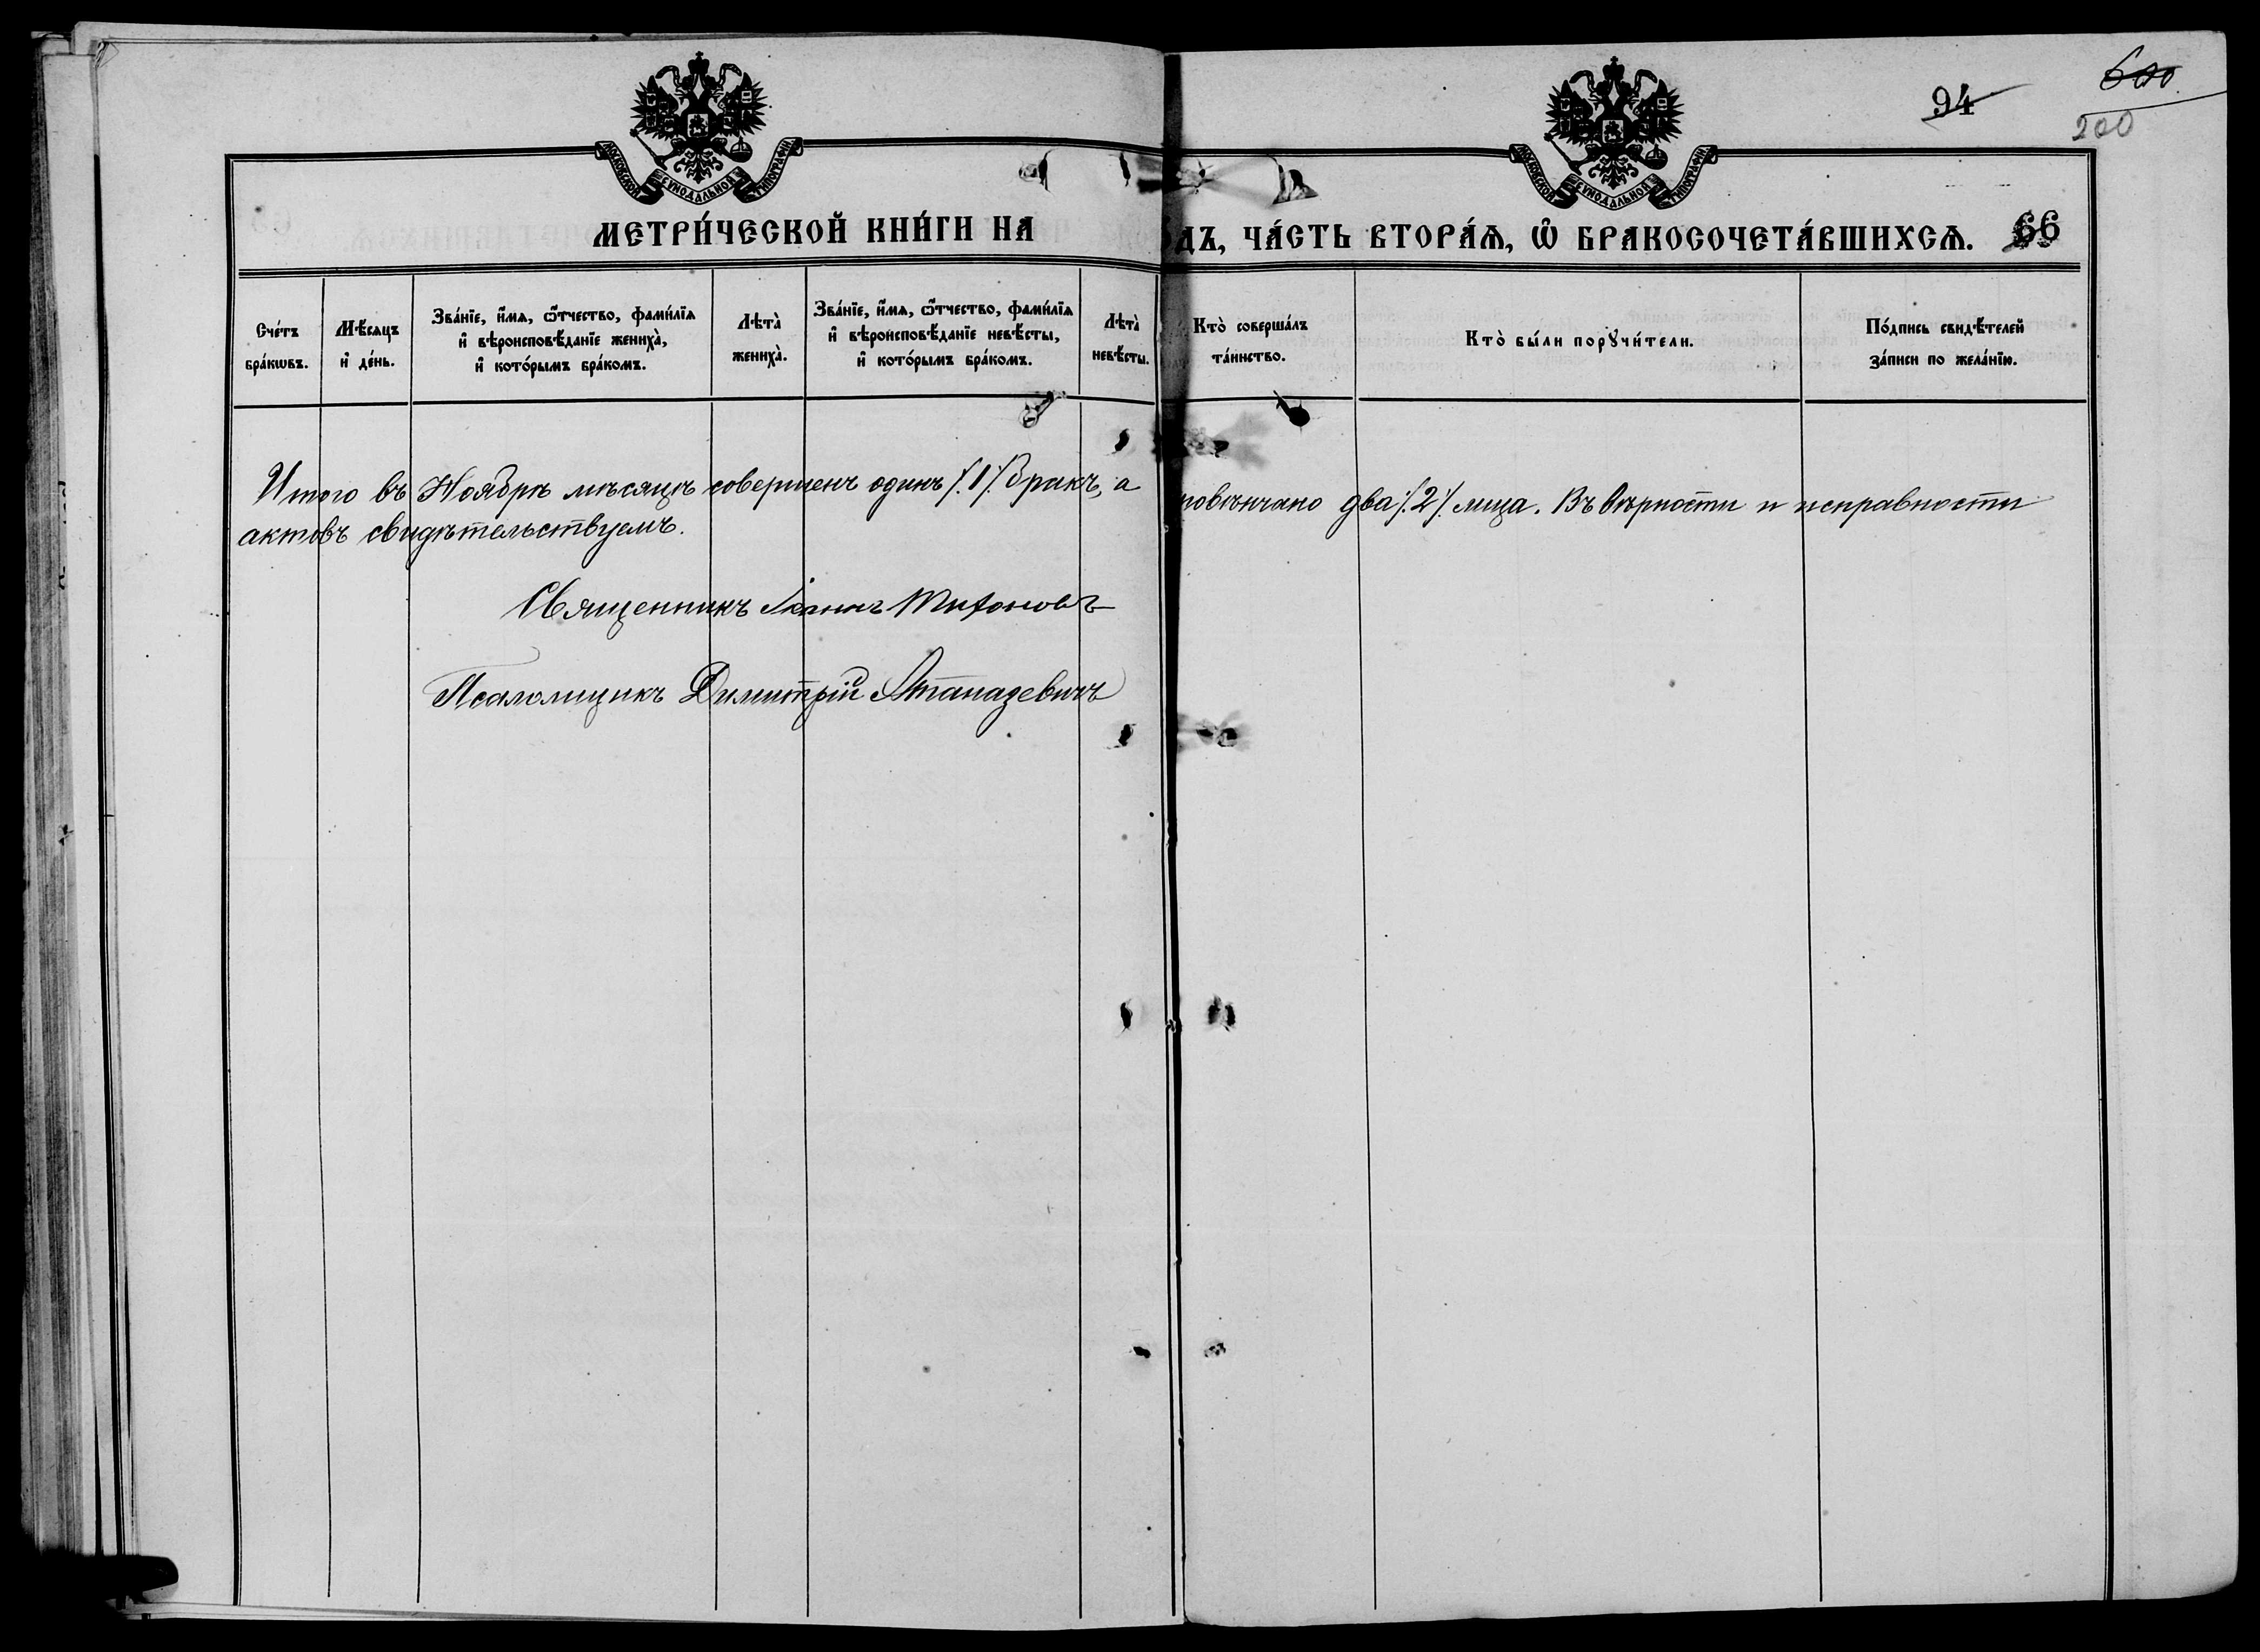 94
600
200
МОСКОВСКОЙ СУНОДАЛЬНОЙ ТИПОГРАФІИ
МОСКОВСКОЙ СУНОДАЛЬНОЙ ТИПОГРАФІИ
МЕТРИ́ЧЕСКОЙ КНИ́ГИ НА ОДЪ, ЧА́СТЬ ВТОРА́Ѧ, Ѽ БРАКОСОЧЕТА́ВШИХСѦ. 66
Сче́тъ
бра́кѡвъ.
Мѣ́сяцъ
и҆ де́нь.
Зва́нїе, и҆́мѧ, ѻ҆́тчество, фами́лїѧ
и҆ вѣроисповѣ́данїе жениха̀,
и҆ кото́рымъ бра́комъ.
Лѣта̀
жениха̀.
Зва́нїе, и҆́мѧ, ѻ҆́тчество, фами́лїѧ
и҆ вѣроисповѣ́данїе невѣ́сты,
и҆ кото́рымъ бра́комъ.
Лѣта̀
невѣ́сты.
Кто̀ соверша́лъ
та́инство.
Кто̀ бы́ли порꙋчи́тели.
По́дпись свидѣ́телей
за́писи по жела́нїю.
Итого въ Ноябрѣ мѣсяцѣ совершенъ одинъ /.1/. бракъ, а повѣнчано два /.2/. лица. Въ вѣрности и исправности
актовъ свидѣтельствуемъ.
Священникъ Іоаннъ Тихоновъ
Псаломщикъ Димитрій Атаназевичъ